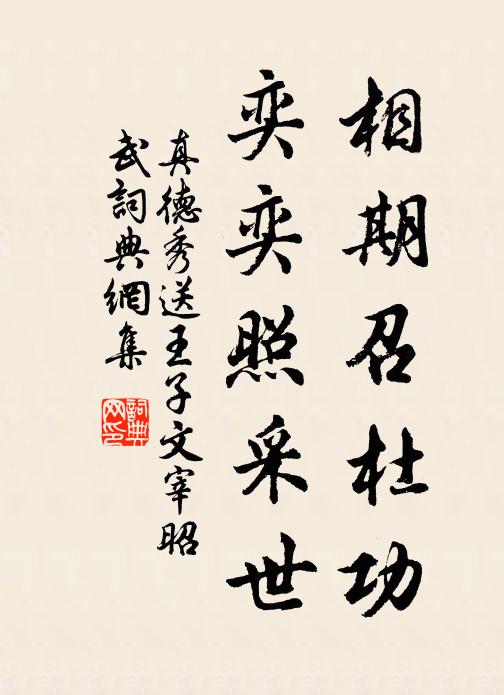 相期召杜功
奕奕照采世
真德秀送王子文宰昭
武詞典網集
詞典网印